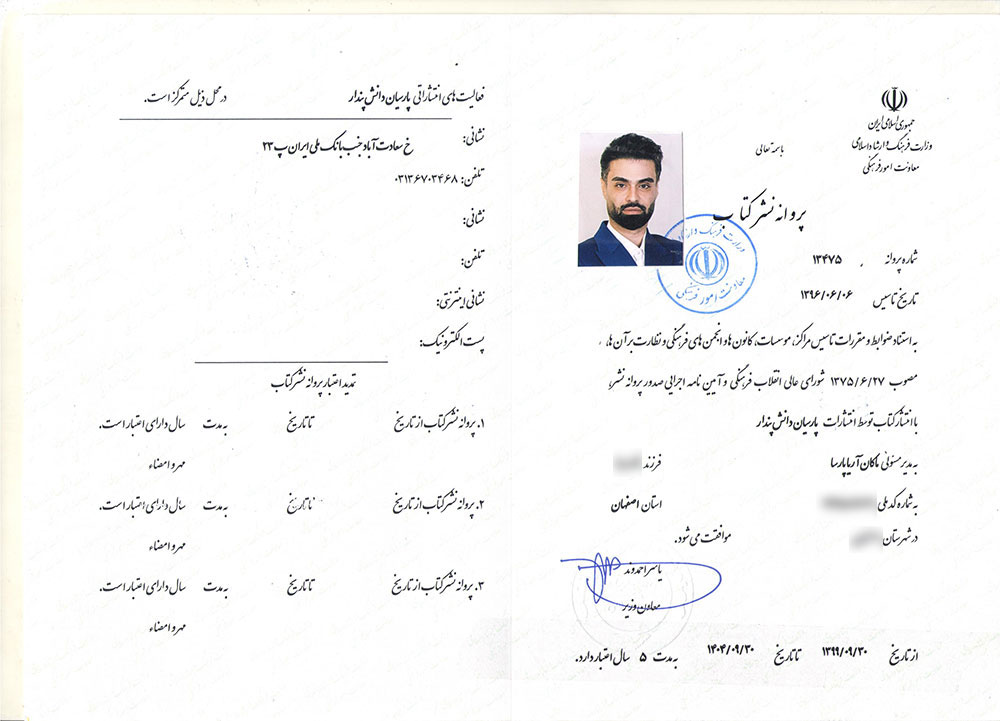 جمهوری اسلامی ایران
وزارت فرهنگ و ارشاد اسلامی
معاونت امور فرهنگی
باسمه تعالی
پروانه نشر کتاب
شماره پروانه ۱۳۴۷۵
تاریخ تاسیس ۱۳۹۶/۰۶/۰۶
به استناد ضوابط و مقررات تاسیس مراکز، موسسات، کانون ها و انجمن های فرهنگی و نظارت بر آن ها،
مصوب ۱۳۷۵/۶/۲۷ شورای عالی انقلاب فرهنگی و آیین نامه اجرایی صدور پروانه نشر،
با انتشار کتاب توسط انتشارات پارسیان دانش پندار
به مدیر مسئولی ماکان آریا پارسا فرزند
به شماره کد ملی استان اصفهان
در شهرستان موافقت می شود.
یاسر احمدوند
معاون وزیر
از تاریخ ۱۳۹۹/۰۹/۳۰ تا تاریخ ۱۴۰۴/۰۹/۳۰ به مدت ۵ سال اعتبار دارد.
وزارت فرهنگ و ارشاد
معاونت امور فرهنگی
فعالیت های انتشاراتی پارسیان دانش پندار در محل ذیل متمرکز است.
نشانی: خ سعادت آباد جنب بانک ملی ایران پ ۲۳
تلفن: ۰۳۱۳۶۷۰۳۴۶۸
نشانی:
تلفن:
نشانی اینترنتی:
پست الکترونیک:
تمدید اعتبار پروانه نشر کتاب
۱. پروانه نشر کتاب از تاریخ تا تاریخ به مدت سال دارای اعتبار است.
مهر و امضاء
۲. پروانه نشر کتاب از تاریخ تا تاریخ به مدت سال دارای اعتبار است.
مهر و امضاء
۳. پروانه نشر کتاب از تاریخ تا تاریخ به مدت سال دارای اعتبار است.
مهر و امضاء